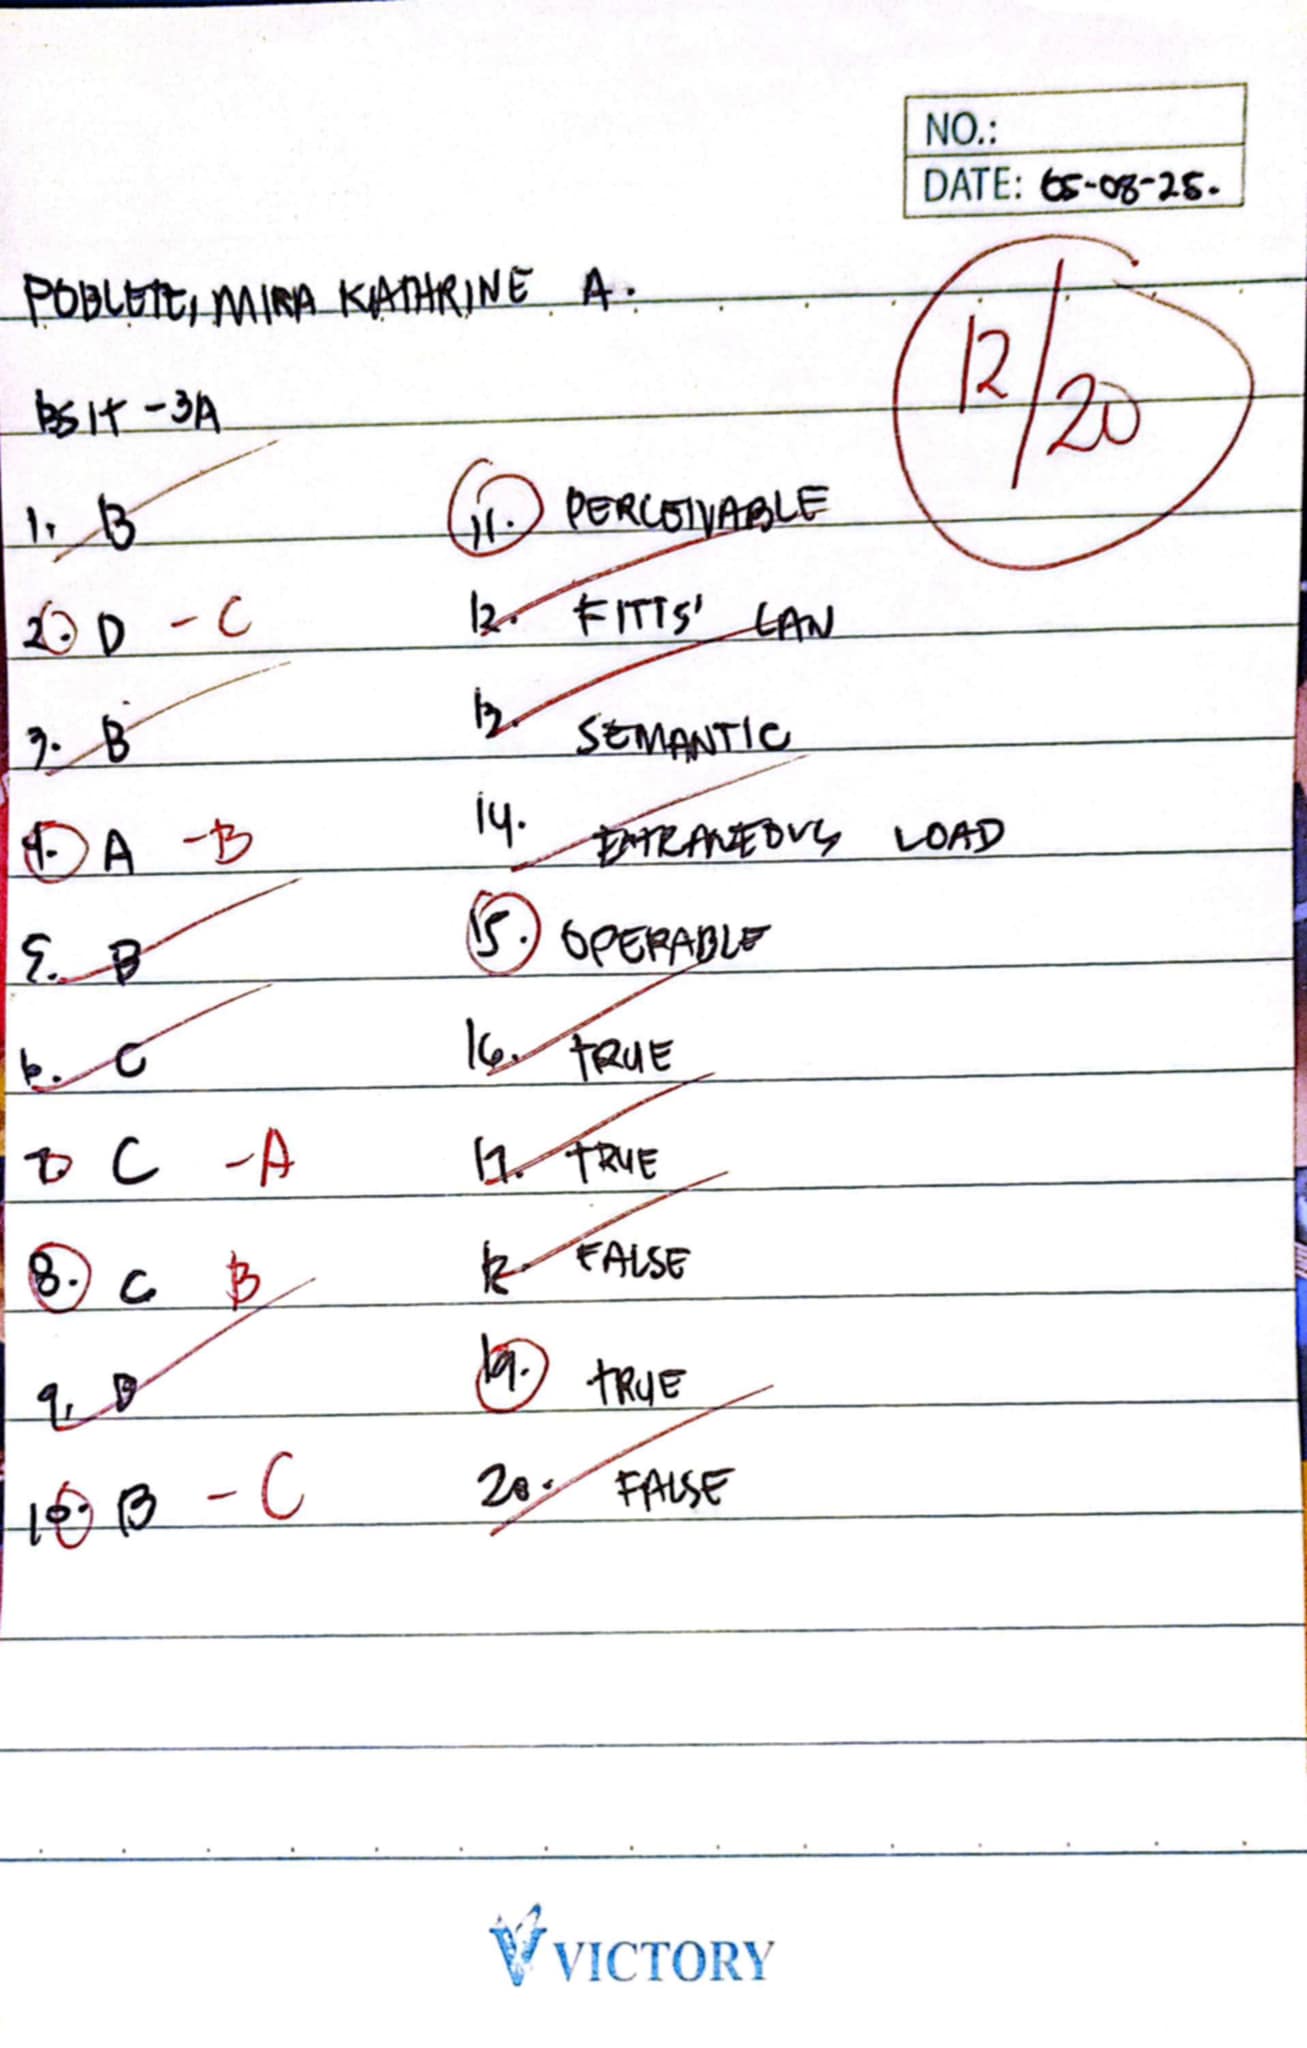 NO.:
DATE: 05-08-25.
POBLETE, MIRA KATHRINE A.
12/20
BSIT-3A
1. B
2. D - C
3. B
4. A - B
5. B
6. C
7. C - A
8. C B
9. D
10. B - C
11. PERCEIVABLE
12. FITTS' LAW
13. SEMANTIC
14. EXTRANEOUS LOAD
15. OPERABLE
16. TRUE
17. TRUE
18. FALSE
19. TRUE
20. FALSE
VICTORY